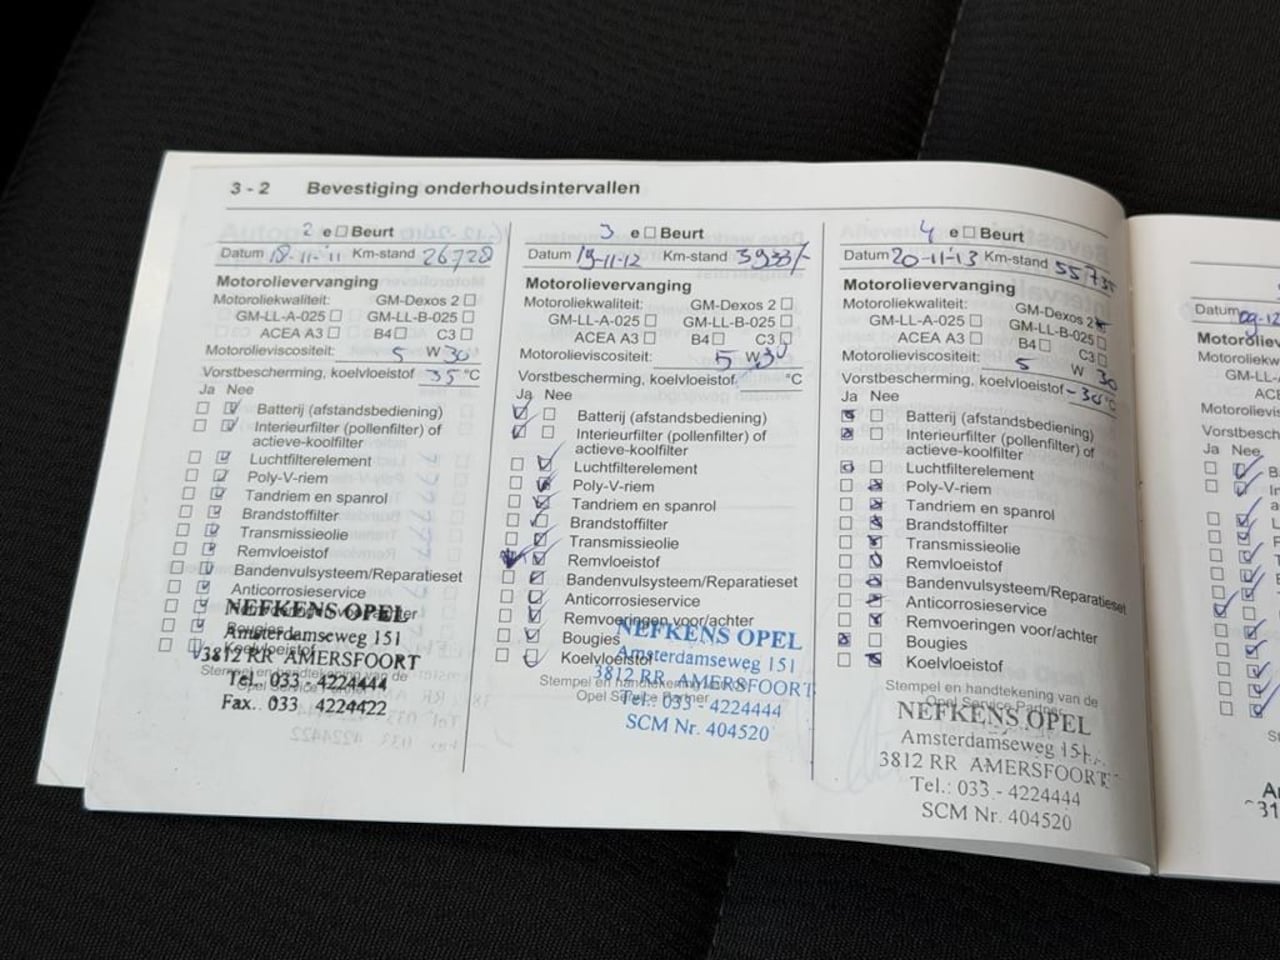 3 - 2 Bevestiging onderhoudsintervallen
2 e Beurt
Datum 18-11-'11 Km-stand 26728
Motorolievervanging
Motoroliekwaliteit: GM-Dexos 2
GM-LL-A-025 GM-LL-B-025
ACEA A3 B4 C3
Motorolieviscositeit: 5 W 30
Vorstbescherming, koelvloeistof 35 °C
Ja Nee
Batterij (afstandsbediening)
Interieurfilter (pollenfilter) of
actieve-koolfilter
Luchtfilterelement
Poly-V-riem
Tandriem en spanrol
Brandstoffilter
Transmissieolie
Remvloeistof
Bandenvulsysteem/Reparatieset
Anticorrosieservice
NEFKENS OPEL
Amsterdamseweg 151
3812 RR AMERSFOORT
Tel. 033 - 4224444
Fax. 033 4224422
3 e Beurt
Datum 19-11-12 Km-stand
Motorolievervanging
Motoroliekwaliteit: GM-Dexos 2
GM-LL-A-025 GM-LL-B-025
ACEA A3 B4 C3
Motorolieviscositeit: 5 W 30
Vorstbescherming, koelvloeistof °C
Ja Nee
Batterij (afstandsbediening)
Interieurfilter (pollenfilter) of
actieve-koolfilter
Luchtfilterelement
Poly-V-riem
Tandriem en spanrol
Brandstoffilter
Transmissieolie
Remvloeistof
Bandenvulsysteem/Reparatieset
Anticorrosieservice
Remvoeringen voor/achter
Bougies
Koelvloeistof
Stempel en handtekening van de
Opel Service Partner
NEFKENS OPEL
Amsterdamseweg 151
3812 RR AMERSFOORT
Tel.: 033 - 4224444
SCM Nr. 404520
4 e Beurt
Datum 20-11-'13 Km-stand 55735
Motorolievervanging
Motoroliekwaliteit: GM-Dexos 2
GM-LL-A-025 GM-LL-B-025
ACEA A3 B4 C3
Motorolieviscositeit: 5 W 30
Vorstbescherming, koelvloeistof -36 °C
Ja Nee
Batterij (afstandsbediening)
Interieurfilter (pollenfilter) of
actieve-koolfilter
Luchtfilterelement
Poly-V-riem
Tandriem en spanrol
Brandstoffilter
Transmissieolie
Remvloeistof
Bandenvulsysteem/Reparatieset
Anticorrosieservice
Remvoeringen voor/achter
Bougies
Koelvloeistof
Stempel en handtekening van de
Opel Service Partner
NEFKENS OPEL
Amsterdamseweg 151
3812 RR AMERSFOORT
Tel.: 033 - 4224444
SCM Nr. 404520
Datum 09-12
Ja Nee